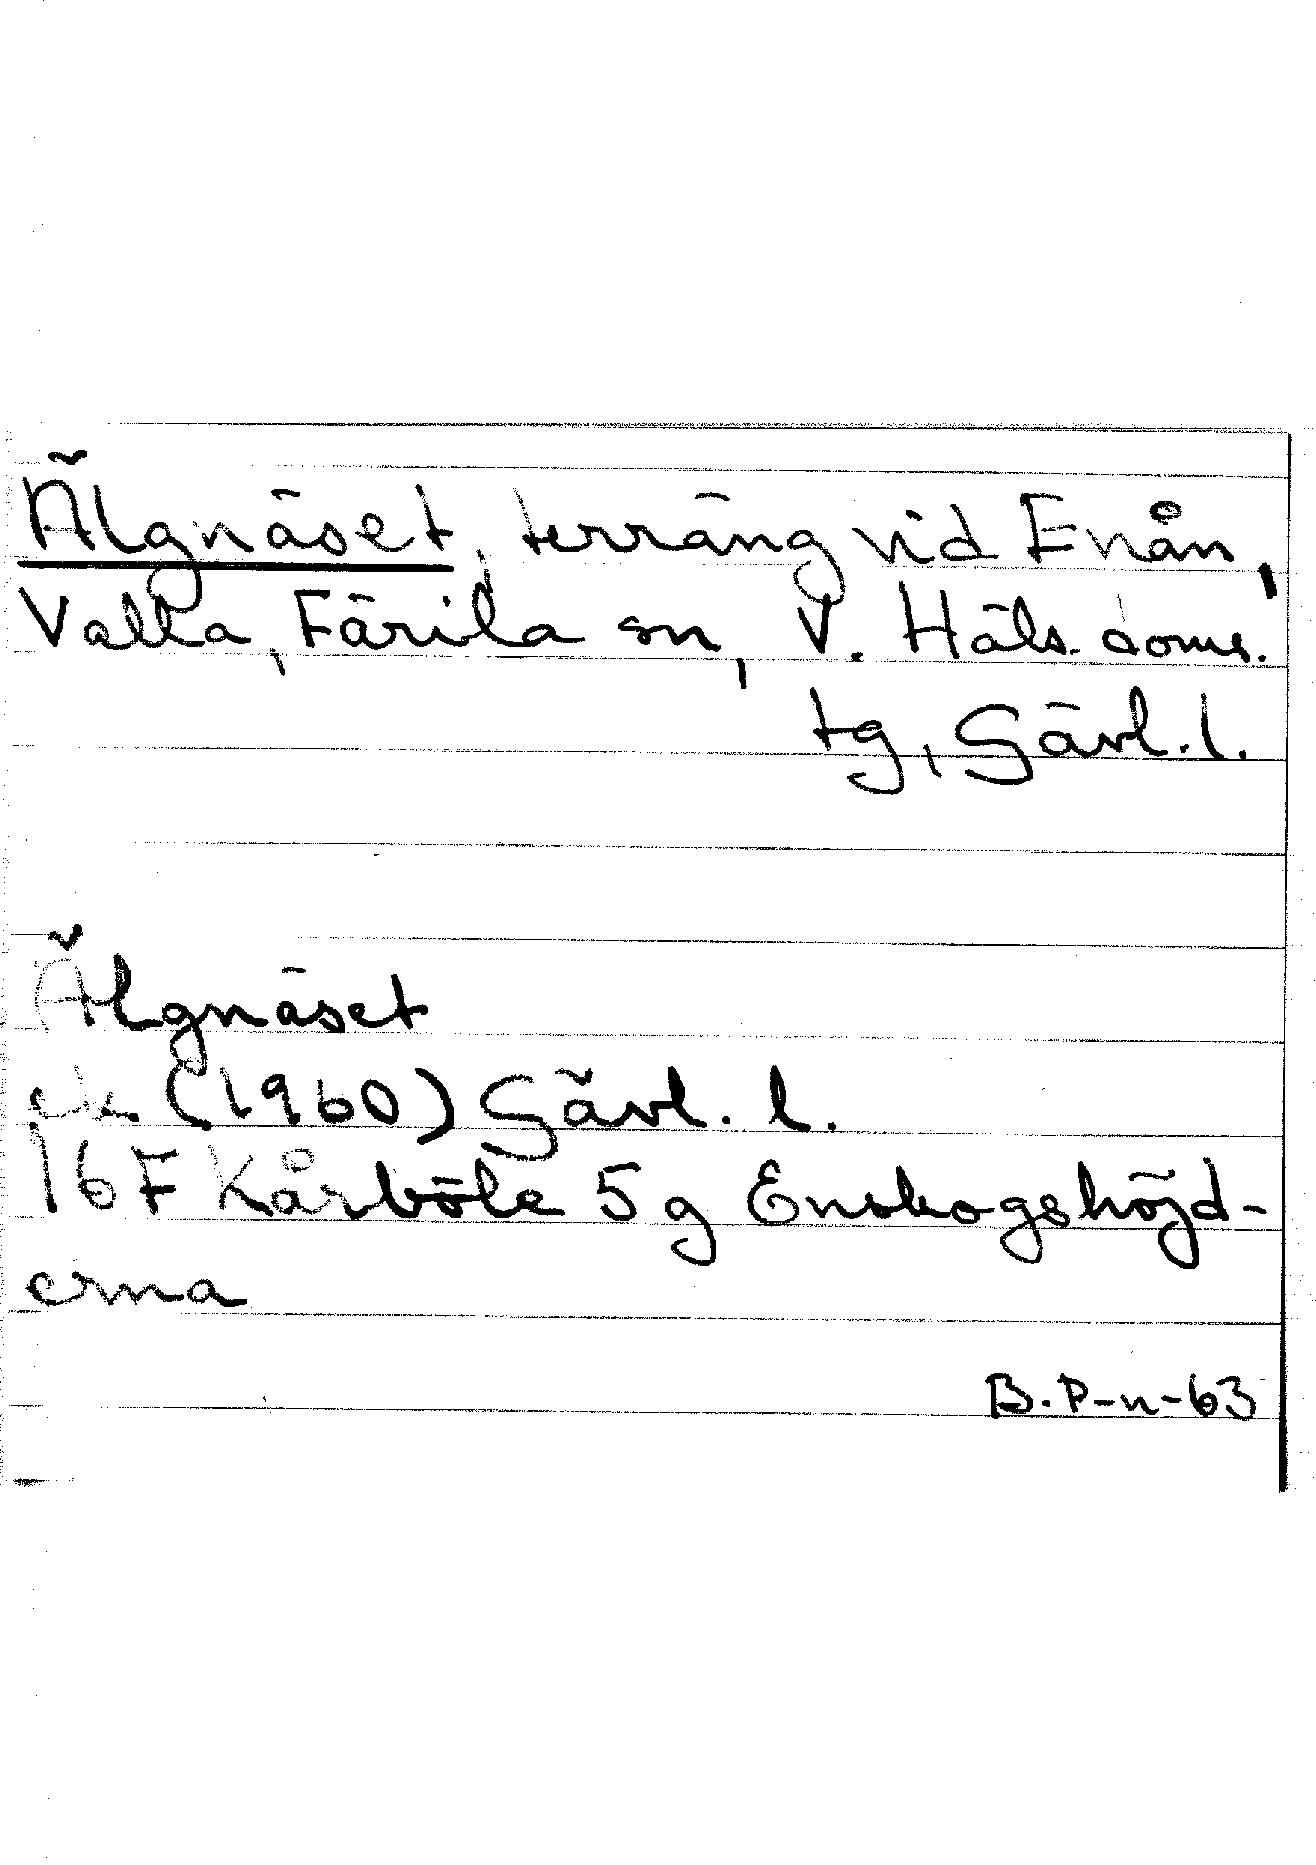 Älgnäset, terräng vid Enån,
Valla, Färila sn, V. Häls. doms.
tg, Gävl. l.
Älgnäset
ek (1960) Gävl. l.
16F Kårböle 5g Enskogshöjd-
erna
B. P-n-63